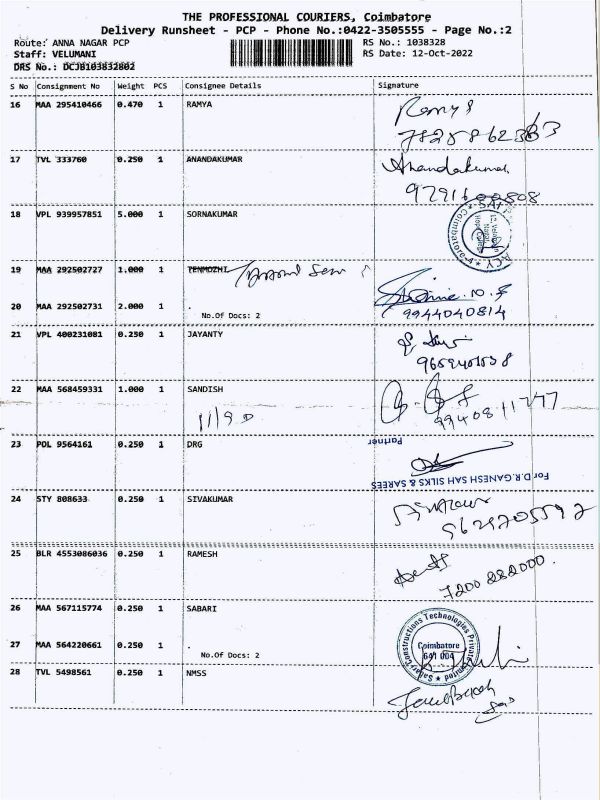 THE PROFESSIONAL COURIERS, Coimbatore
Delivery Runsheet - PCP - Phone No.:0422-3505555 - Page No.:2
Route: ANNA NAGAR PCP RS No.: 1038328
Staff: VELUMANI RS Date: 12-Oct-2022
DRS No.: DCJB103832802
S No Consignment No Weight PCS Consignee Details Signature
16 MAA 295410466 0.470 1 RAMYA
17 TVL 333760 0.250 1 ANANDAKUMAR Anandakumar
18 VPL 939957851 5.000 1 SORNAKUMAR
Coimbatore-4
19 MAA 292502727 1.000 1 TENMOZHI
20 MAA 292502731 2.000 1 .
No.Of Docs: 2 9944040814
21 VPL 400231081 0.250 1 JAYANTY
22 MAA 568459331 1.000 1 SANDISH
23 POL 9564161 0.250 1 DRG Partner
For D.R.GANESH SAH SILKS & SAREES
24 STY 808633 0.250 1 SIVAKUMAR
25 BLR 4553086036 0.250 1 RAMESH
7200 282000
26 MAA 567115774 0.250 1 SABARI
Sabar Constructions Technologies Private Limited
Coimbatore
641 004
27 MAA 564220661 0.250 1 .
No.Of Docs: 2
28 TVL 5498561 0.250 1 NMSS